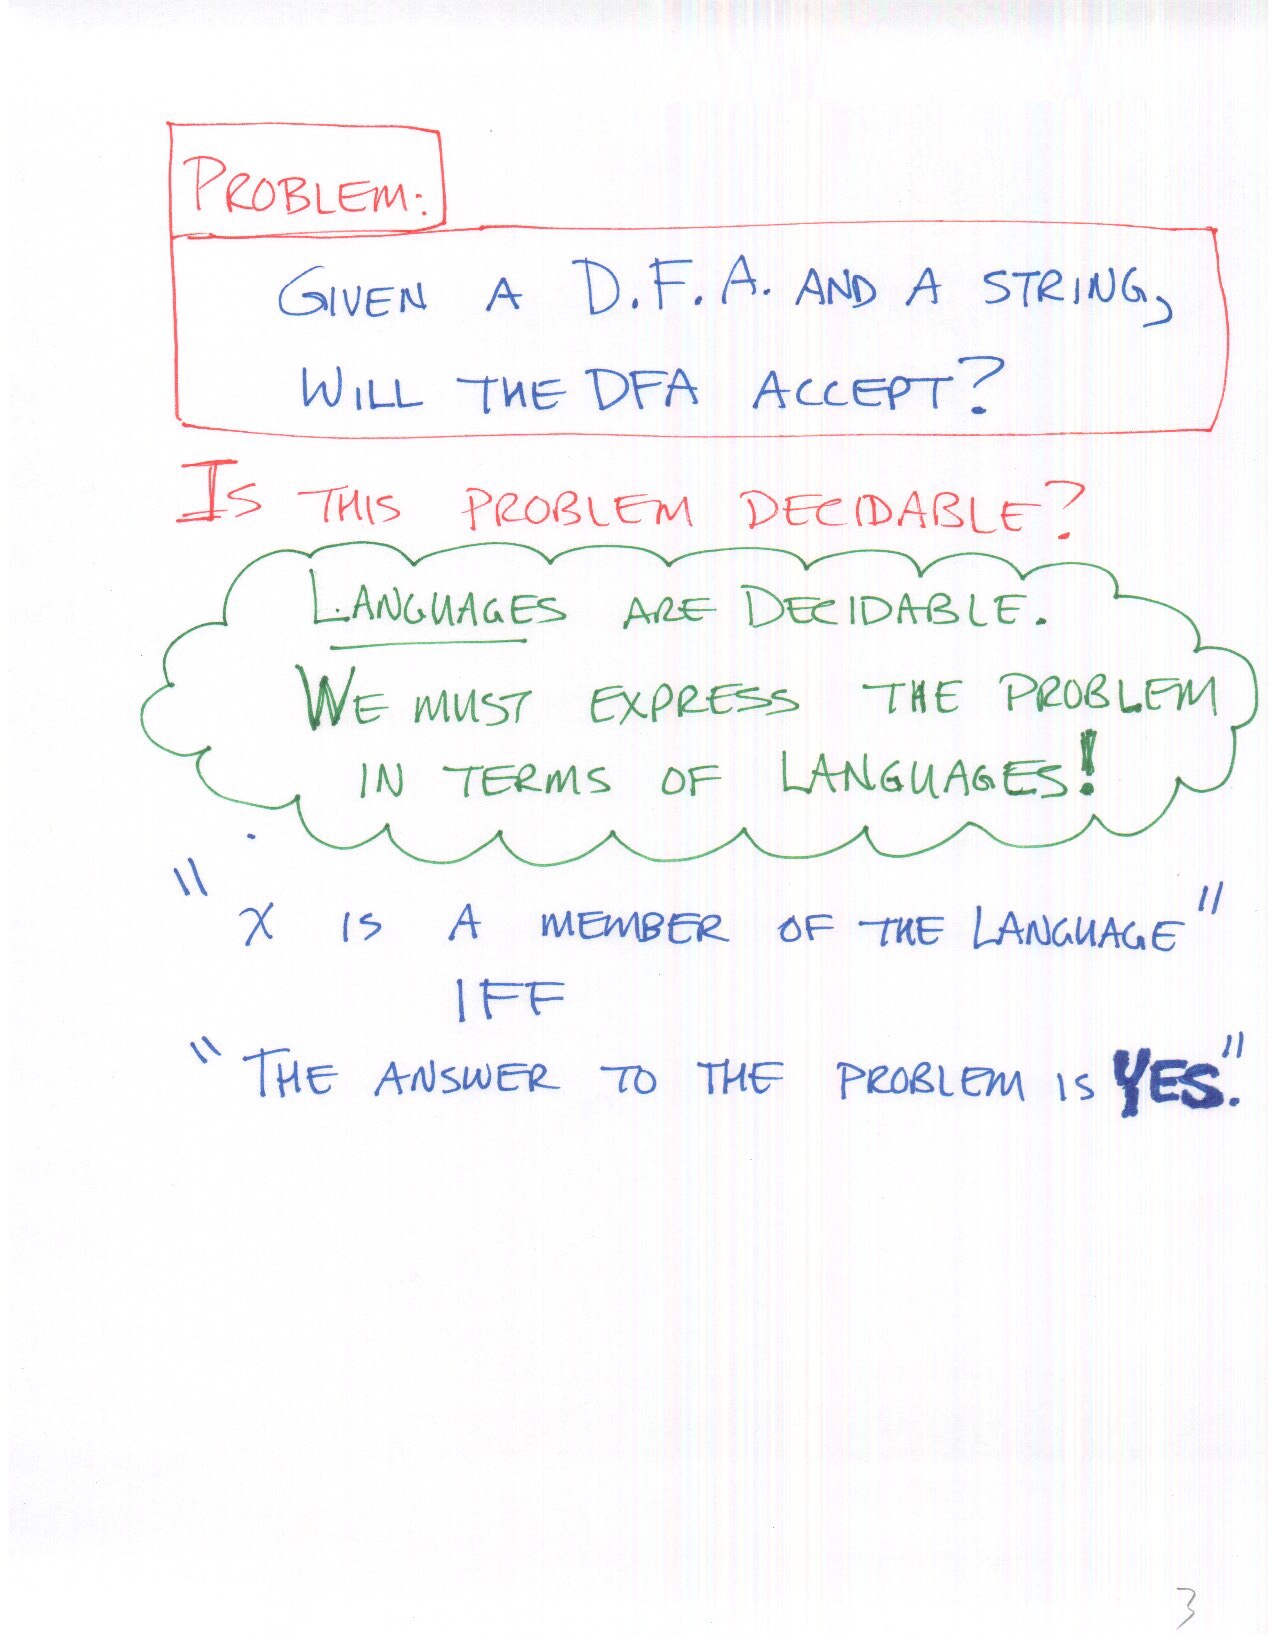 PROBLEM:
GIVEN A D.F.A. AND A STRING,
WILL THE DFA ACCEPT?
IS THIS PROBLEM DECIDABLE?
LANGUAGES ARE DECIDABLE.
WE MUST EXPRESS THE PROBLEM
IN TERMS OF LANGUAGES!
"X IS A MEMBER OF THE LANGUAGE"
IFF
"THE ANSWER TO THE PROBLEM IS YES."
3